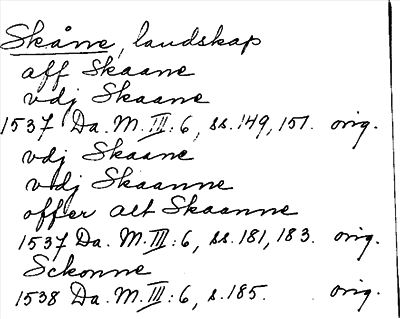 Skåne, landskap
aff Skaane
vdj Skaane
1537 Da. M. III: 6, ss. 149, 151. orig.
vdj Skaane
vdj Skaanne
offer alt Skaanne
1537 Da. M. III: 6, ss. 181, 183. orig.
Sckonne
1538 Da. M. III: 6, s. 185. orig.